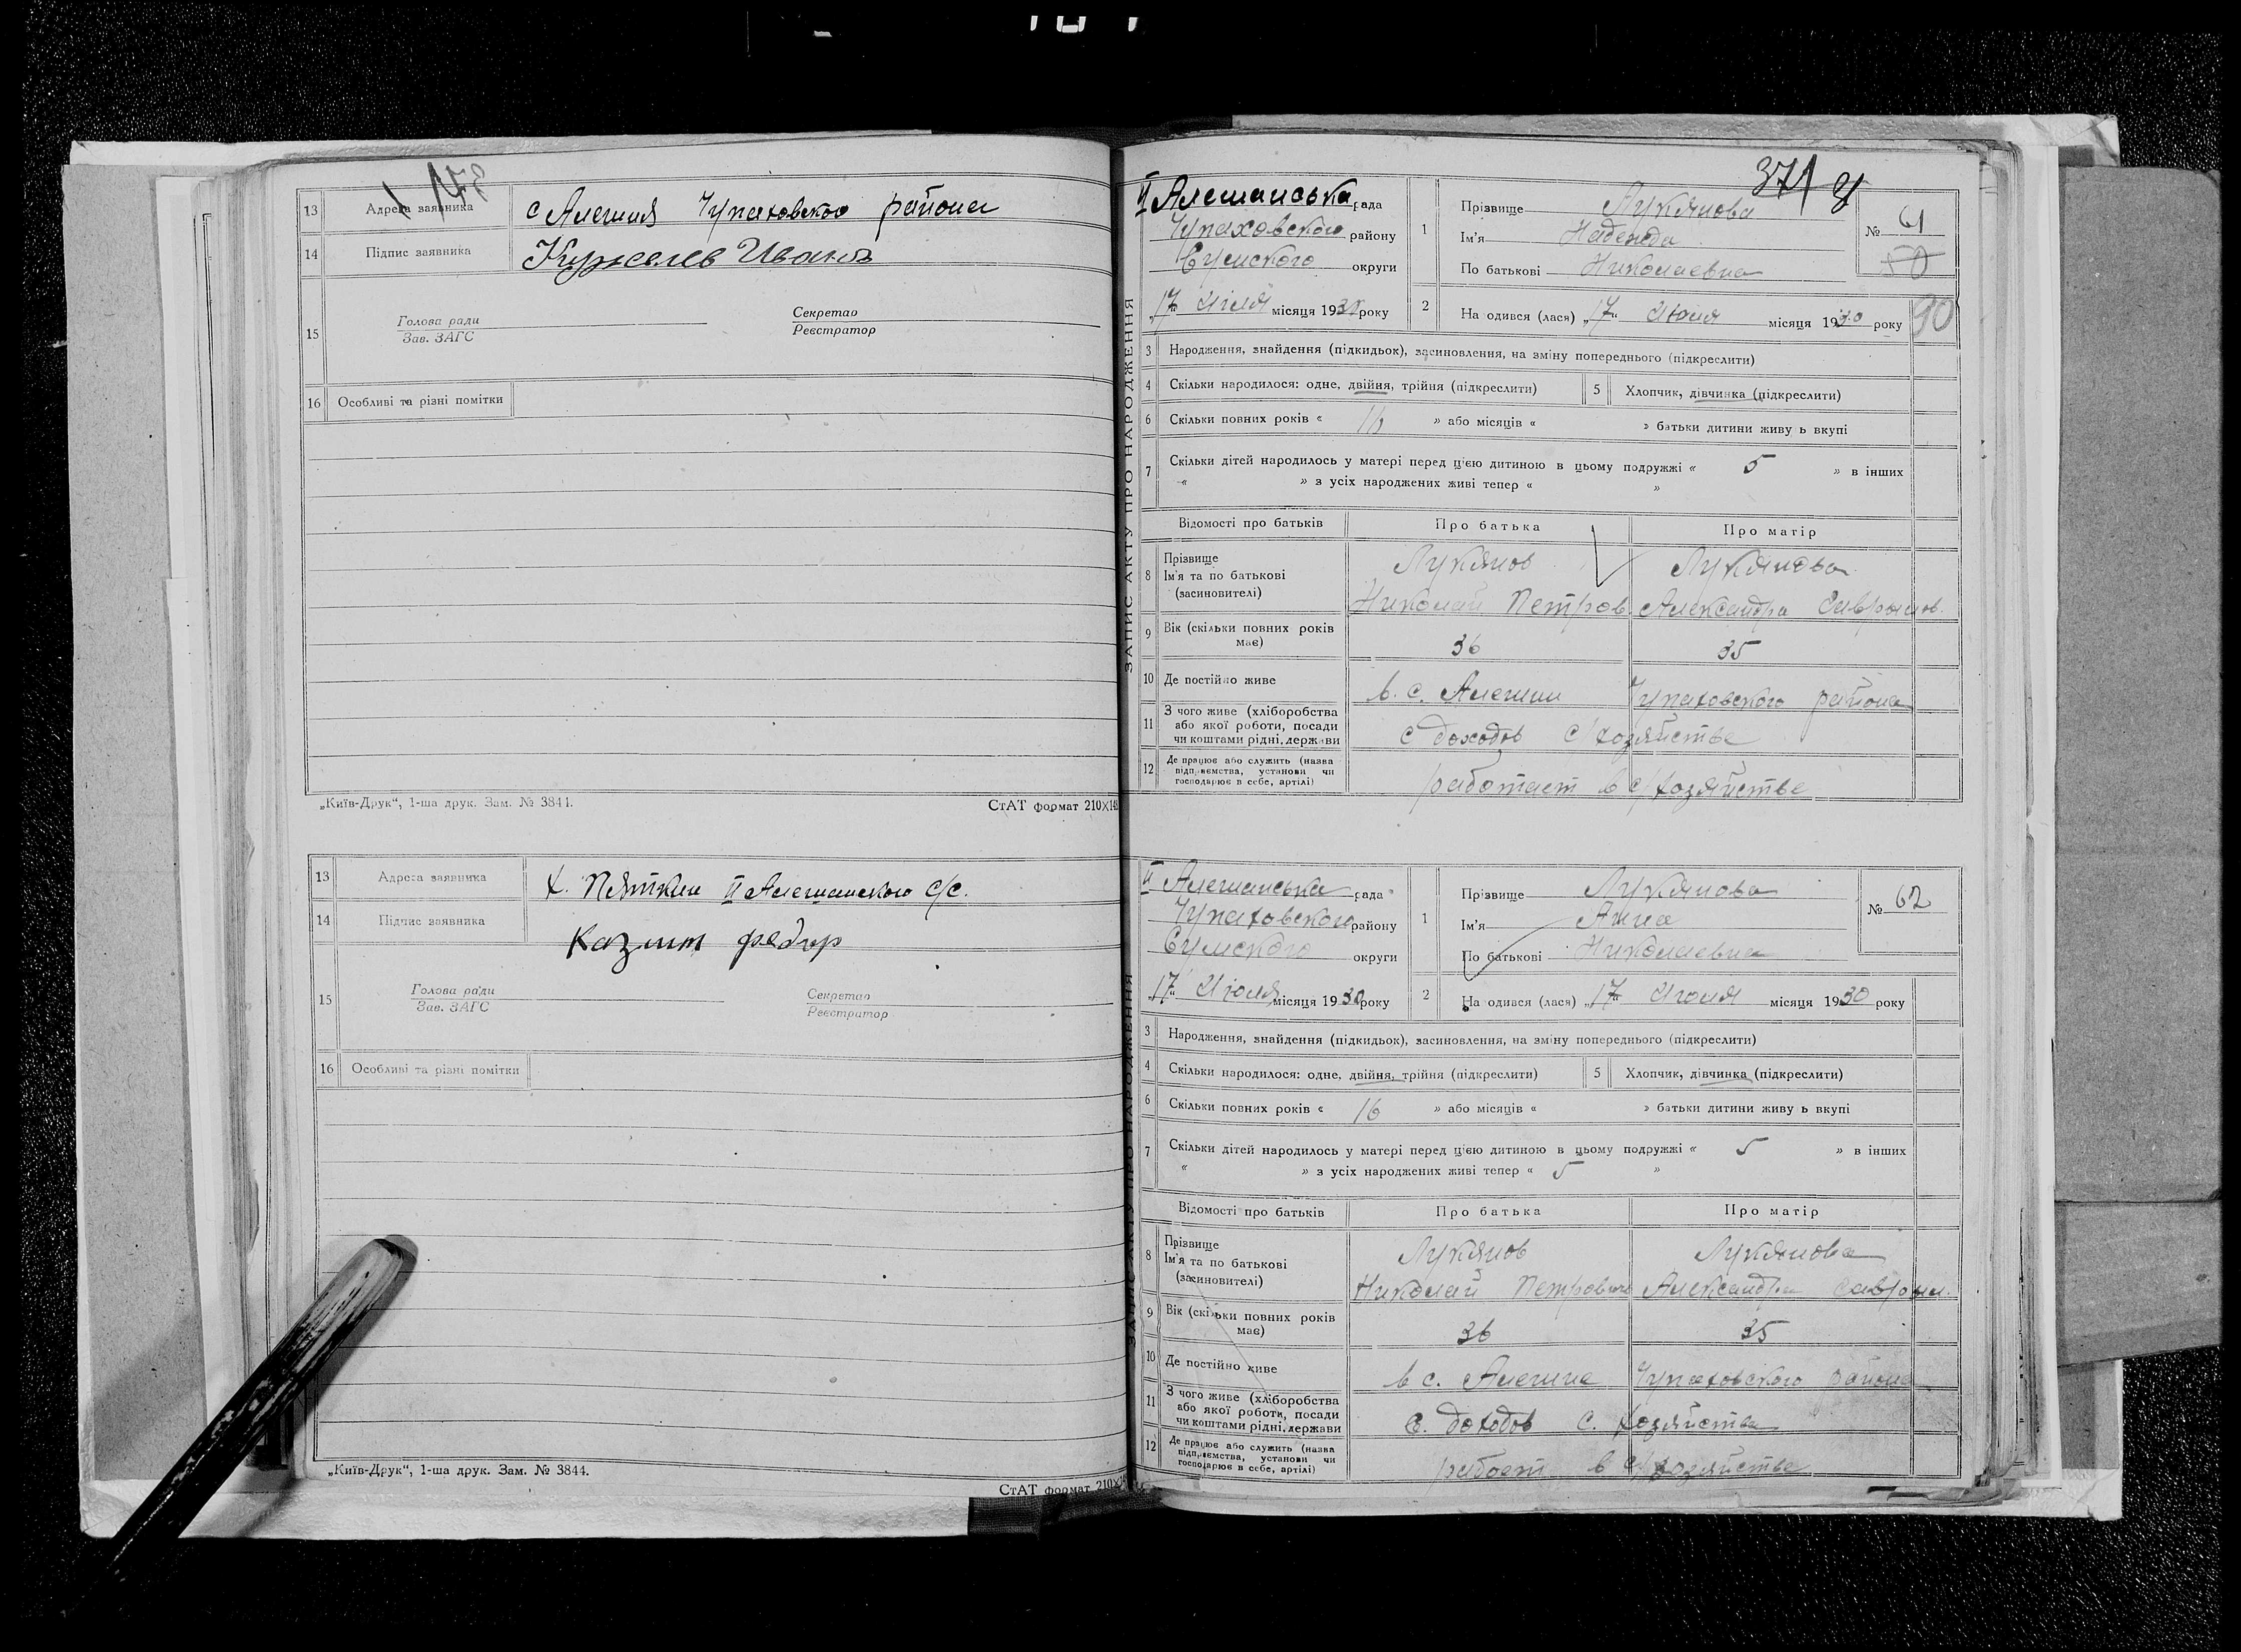 13 Адреса заявника с Алешня Чупаховского района
14 Підпис заявника Иванъ
15 Голова ради Зав. ЗАГС Секретар Реєстратор
16 Особливі та різні помітки
„Київ-Друк“, 1-ша друк. Зам. № 3844.
СтАТ формат 210×148
13 Адреса заявника х. Пяткин II Алешанского с/с.
14 Підпис заявника Казим федор
15 Голова ради Зав. ЗАГС Секретар Реєстратор
16 Особливі та різні помітки
„Київ-Друк“, 1-ша друк. Зам. № 3844.
СтАТ формат 210×
ЗАПИС АКТУ ПРО НАРОДЖЕННЯ
371
II Алешанська рада
Чупаховского району
Сумского округи
„17“ июля місяця 1930 року
1 Прізвище Лукянова
Ім'я Надежда
По батькові Николаевна
№ 61
50
90
2 На одився (лася) „17“ Июля місяця 1930 року
3 Народження, знайдення (підкидьок), засиновлення, на зміну попереднього (підкреслити)
4 Скільки народилося: одне, двійня, трійня (підкреслити) 5 Хлопчик, дівчинка (підкреслити)
6 Скільки повних років « 16 » або місяців « » батьки дитини живу ь вкупі
7 Скільки дітей народилось у матері перед цією дитиною в цьому подружжі « 5 » в інших
« » з усіх народжених живі тепер « »
Відомості про батьків Про батька Про матір
8 Прізвище Ім'я та по батькові (засиновителі) Лукянов Лукянова
Николай Петров. Александра Савроньов.
9 Вік (скільки повних років має) 36 35
10 Де постійно живе в. с. Алешни Чупаховского района
11 З чого живе (хліборобства або якої роботи, посади чи коштами рідні, держави с доходов с/хозяйства
12 Де працює або служить (назва підприємства, установи чи господарює в себе, артілі) работает в с/хозяйстве
ЗАПИС АКТУ ПРО НАРОДЖЕННЯ
II Алешанська рада
Чупаховского району
Сумского округи
„17“ Июля місяця 1930 року
1 Прізвище Лукянова
Ім'я Анна
По батькові Николаевна
№ 62
2 На одився (лася) „17“ Июля місяця 1930 року
3 Народження, знайдення (підкидьок), засиновлення, на зміну попереднього (підкреслити)
4 Скільки народилося: одне, двійня, трійня (підкреслити) 5 Хлопчик, дівчинка (підкреслити)
6 Скільки повних років « 16 » або місяців « » батьки дитини живу ь вкупі
7 Скільки дітей народилось у матері перед цією дитиною в цьому подружжі « 5 » в інших
« » з усіх народжених живі тепер « 5 »
Відомості про батьків Про батька Про матір
8 Прізвище Ім'я та по батькові (засиновителі) Лукянов Лукянова
Николай Петрович Александра
9 Вік (скільки повних років має) 36 35
10 Де постійно живе в с. Алешне Чупаховского района
11 З чого живе (хліборобства або якої роботи, посади чи коштами рідні, держави с. доходов с. хозяйства
12 Де працює або служить (назва підприємства, установи чи господарює в себе, артілі) в с/хозяйстве